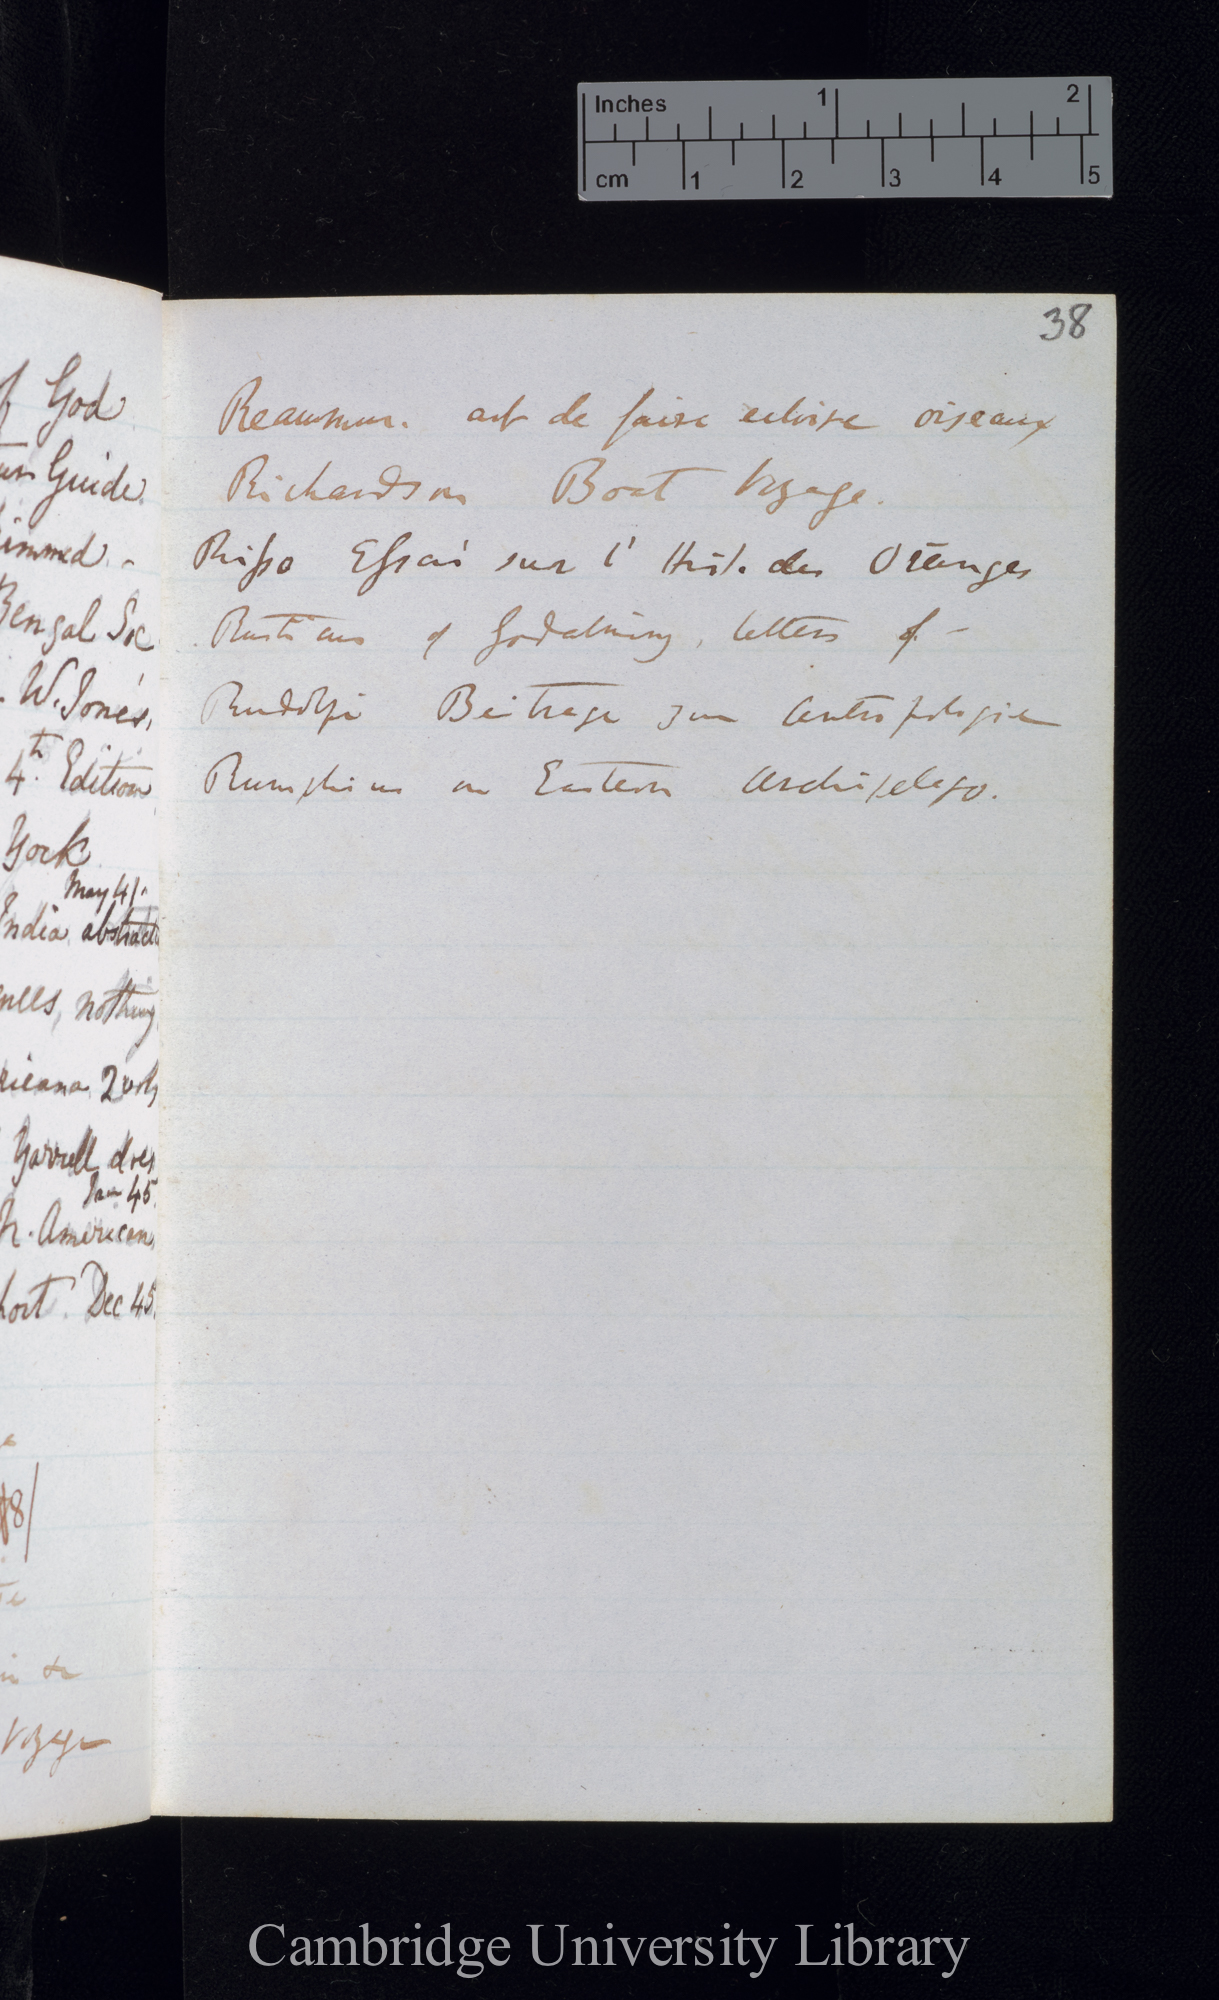 Inches 1 2
cm 1 2 3 4 5
38
of God
Guide
immed. -
Bengal Soc
W. Jones,
4th. Edition
York
May 41.
India abstract
nothing
ricana 2 vols
Yarrell does
Jan 45
N. American
hort. Dec 45.
48/
in &c
Voyage
Reaumur. art de faire eclore oiseaux
Richardson Boat Voyage.
Risso Essai sur l' Hist. des Oranges
Rusticus of Godalming, letters of -
Rudolphi Beitrage zur Antropologie
Rumphius on Eastern Archipelago.
Cambridge University Library